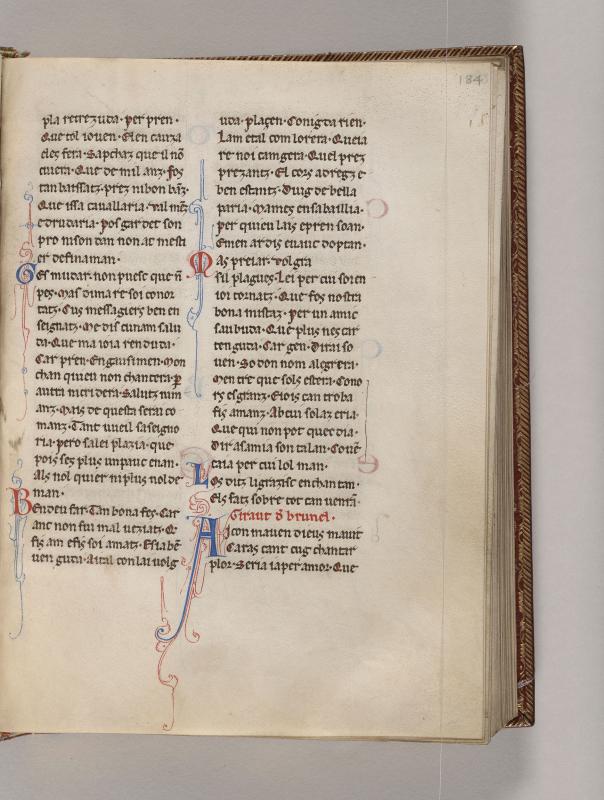 184
pla retrezuda · per pren ·
Que tol ioven · Elen cauza
eles fera · Sapchaz que il nō
cuiera · Que de mil anz · fos
tan baissatz · prez ni bon
Que issa cavallaria · val
e drudaria · pos gardet son
pro ni son dan non ac mesti
er de fin aman ·
Ges mudar non puesc que
pes · Mas dimare soi conor
tatz · Cus messagiers ben en
seignatz · Me dis cunam salu
da · Que ma ioia renduda ·
Car pren · Engausimen · Mon
chan qu ieu non chantera ·
autra ni cridera · Salutz ni m
anz · Mais de questa serai co
manz · Tant vueil sa seigno
ria · pero sa lei plazia · que
pois ses plus un pauc enan ·
Als nol quier ni plus nol de
man ·
Ben deu far · Tan bona fes · Car
anc non fui mal viziatz · E
fis am e fis soi amatz · E sia bē
venguda · Aital con lai volg
uda · plazen · Conigda rien ·
Lam etal com lorera · Que ia
re noi camgera · Quel prez
prezanz · El cors adregz e
ben estanz · Duig de bella
paria · Mames en sa baillia ·
per qu ieu lais e pren soan ·
Emen ardis en auc doptan ·
Mas preiar · volgra
sil plagues · Lei per cui soi en
ioi tornatz · Que fos nostra
bona mistaz · per un amic
saubuda · Que plus nes car
tenguda · Car gen · Dirai so
ven · So don nom alegrera ·
Mentre que sols estera · Cono
rs es granz · E iois can troba
fis amanz · Ab cui solaz e ria ·
Que qui non pot quec dia ·
Dir a samia son talan · Covē
taia per cui lol man ·
Los ditz ligragisc en chantan ·
Els fatz sobre tot can
Giraut de brunel ·
Ajcon maven dieus maiut
Caras cant cug chantar
plor · Seria ia per amor · Que